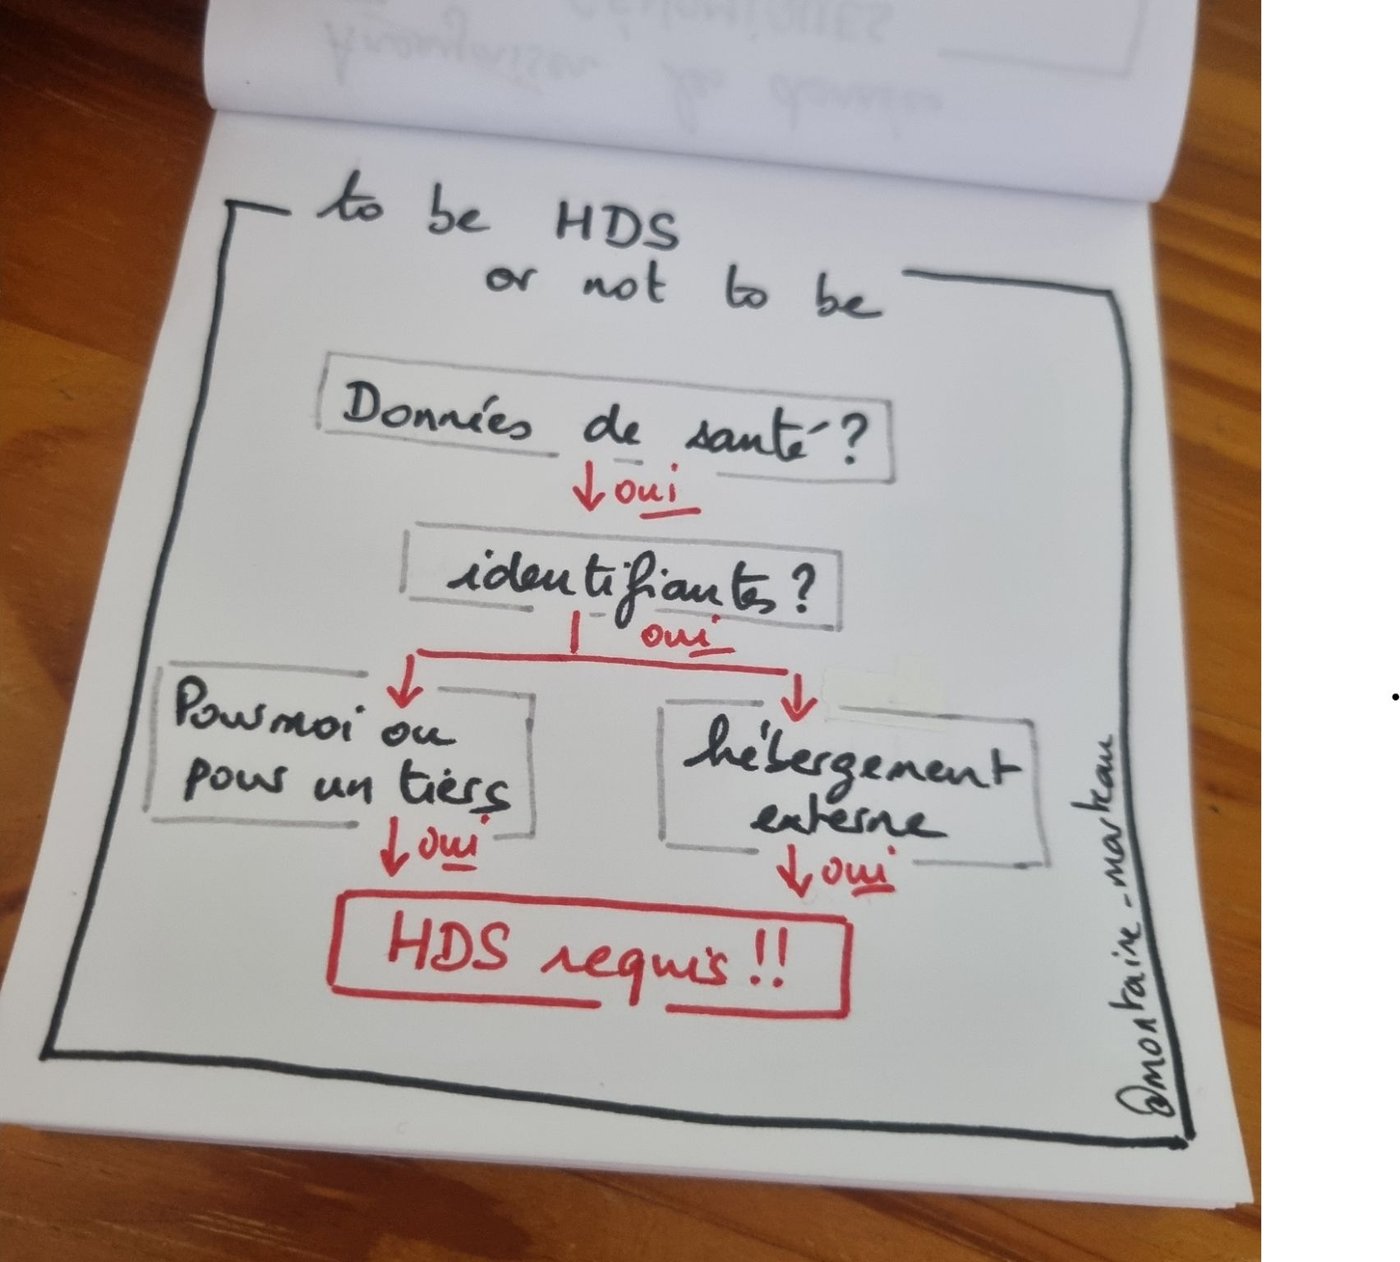 to be HDS
or not to be
Données de santé ?
oui
identifiantes ?
oui
Pour moi ou
pour un tiers
oui
hébergement
externe
oui
HDS requis !!
@montaine-marteau